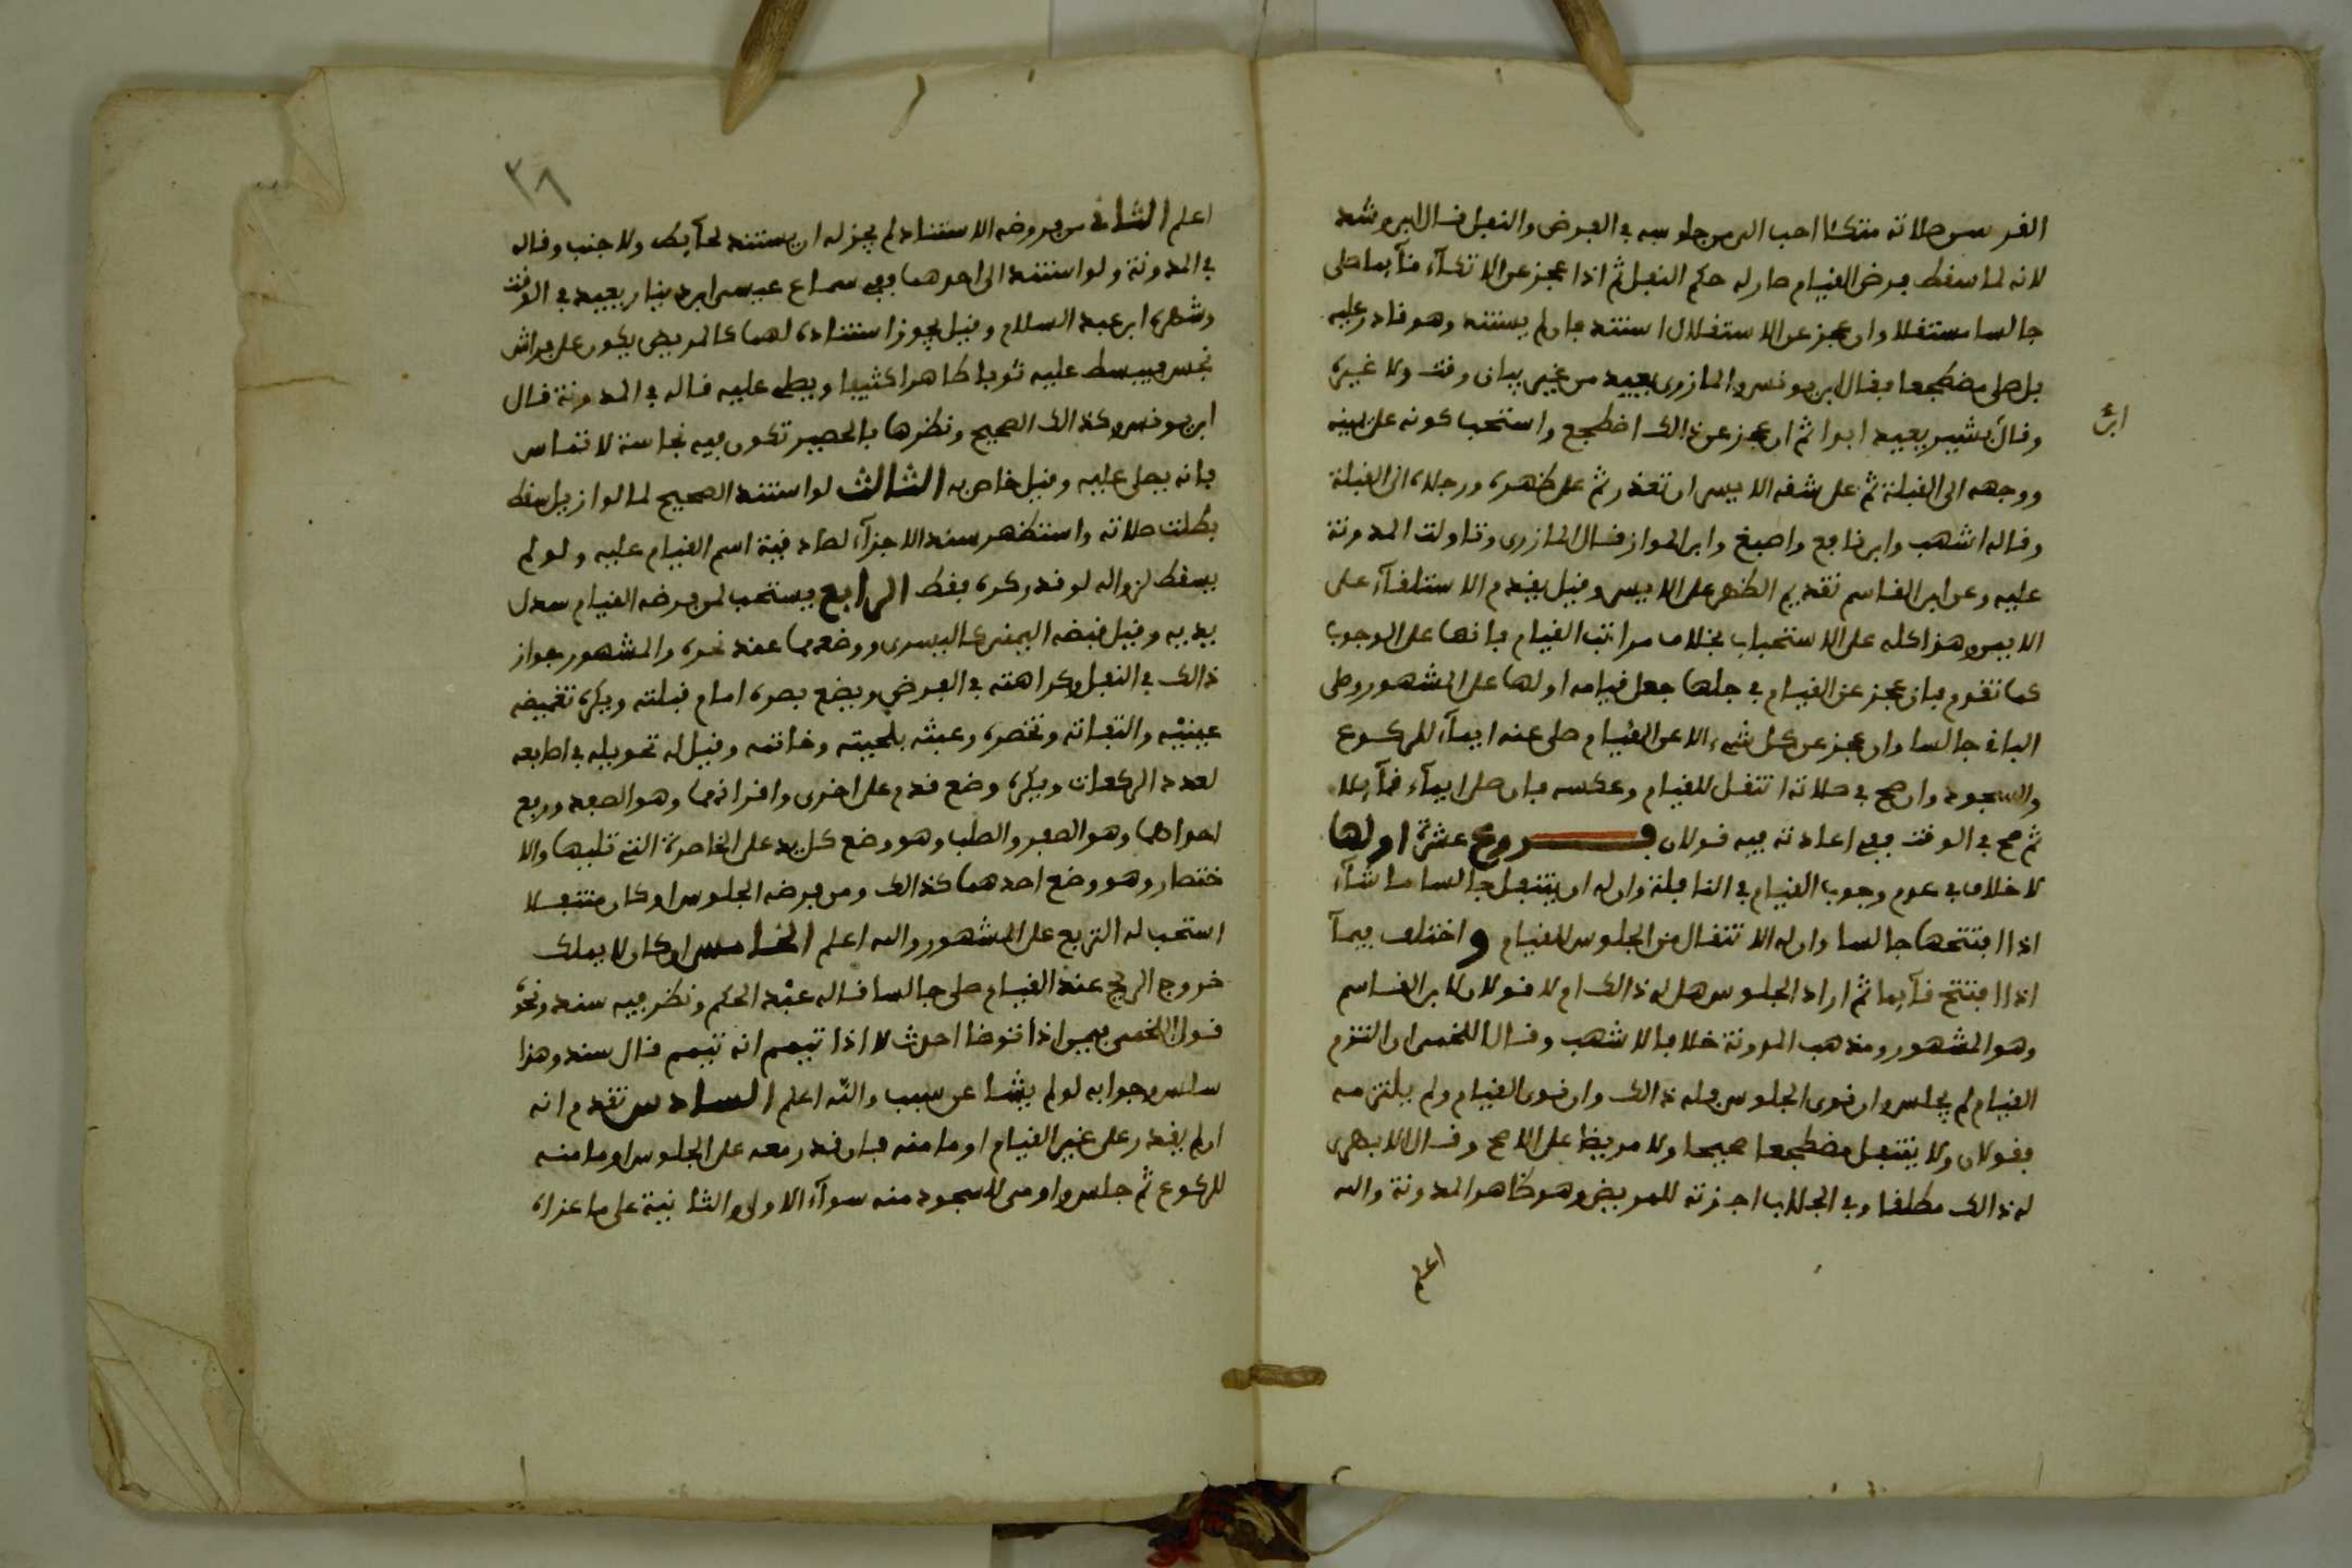 الغر سى صلاته متكئا احب الى من جلوسه في الفرض والنفل قال ابن رشد
لانه لما سقط فرض القيام صار له حكم النفل ثم اذا عجز عن الاتكاء قآيما صلى
جالسا مستقلا وان عجز عن الاستقلال استند فان لم يستند وهو قادر عليه
بل صلى مضطجعا فقال ابن يونس والمازري يعيد من غير بيان وقت ولا غيره
وقال بشير يعيد ابدا ثم ان عجز عن ذالك اضطجع واستحب كونه على يمينه
ابن
ووجهه الى القبلة ثم على شقه الايسر ان تعذر ثم على ظهره ورجلاه الى القبلة
وقاله اشهب وابن نافع واصبغ وابن المواز قال المازري وتاولت المدونة
عليه وعن ابن القاسم تقديم الظهر على الايسر وقيل يقدم الاستلقآء على
الايمن وهذا كله على الاستحباب بخلاف مراتب القيام فانها على الوجوب
كما تقدم فان عجز عن القيام في جلها جعل قيامه اولها على المشهور وصلى
الباقي جالسا وان عجز عن كل شيء الا عن القيام صلى عنه ايمآء للركوع
والسجود وان صح في صلاته انتقل للقيام وعكسه فان صلى ايمآء قآيلا
ثم صح في الوقت ففي اعادته فيه قولان فروع عشرة اولها
لا خلاف في عدم وجوب القيام في النافلة وان له ان يتنفل جالسا ما شآء
اذا افتتحها جالسا وان له الانتقال من الجلوس للقيام واختلف فيمآ
اذا افتتح قآيما ثم اراد الجلوس هل له ذالك ام لا قولان لابن القاسم
وهو المشهور ومذهب المدونة خلافا لاشهب وقال اللخمي ان التزم
القيام لم يجلس وان نوى الجلوس فله ذالك وان نوى القيام ولم يلتزمه
فقولان ولا يتنفل مضطجعا صحيحا ولا مريضا على الاصح وقال الابهري
له ذالك مطلقا وفي الجلاب اجزته للمريض وهو ظاهر المدونة والله
اعلم
٣٨
اعلم الثاني من فروضه الاستناد لم يجز له ان يستند لحآيض ولا جنب وقاله
في المدونة ولو استند الى احدهما ففي سماع عيسى ابن دينار يعيد في الوقت
وشهره ابن عبد السلام وقيل يجوز استناده لهما كالمريض يكون على فراش
نجس فيبسط عليه ثوبا طاهرا كثيفا ويصلي عليه قاله في المدونة قال
ابن يونس وكذالك الصحيح ونظرها بالحصير تكون فيه نجاسة لا تماس
فانه يصلى عليه وقيل خاص به الثالث لو استند الصحيح لما لو ازيل سقط
بطلت صلاته واستظهر سند الاجزآء لصادفية اسم القيام عليه ولو لم
يسقط لزواله لو قدر كره فقط الرابع يستحب لمن فرضه القيام سدل
يديه وقيل قبضه اليمنى على اليسرى ووضعهما عند نحره والمشهور جواز
ذالك في النفل وكراهته في الفرض ويضع بصره امام قبلته ويكره تغميضه
عينيه والتفاته وتخصره وعبثه بلحيته وخاتمه وقيل له تحويله في اصابعه
لعدد الركعات ويكره وضع قدم على اخرى واقرانهما وهو الصفد ورفع
احداهما وهو الصفن والصلب وهو وضع كل يد على الخاصرة التي تليها والا
ختصار وهو وضع احدهما كذالك ومن فرضه الجلوس او كان متنفلا
استحب له التربع على المشهور والله اعلم الخامس او كان لا يملك
خروج الريح عند القيام صلى جالسا قاله عبد الحكم ونظر فيه سند ونحوه
قول اللخمي فيمن اذا توضا احدث لا اذا تيمم انه تيمم قال سند وهذا
سلس وجوابه لو لم ينشا عن سبب والله اعلم السادس تقدم انه
ان لم يقدر على غير القيام اوما منه فان قدر معه على الجلوس اوما منه
للركوع ثم جلس واومى للسجود منه سوآء الاولى والثانية على ما عزاه